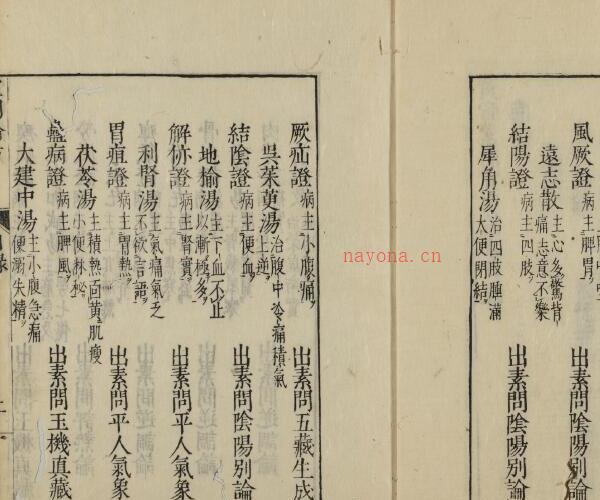 風厥證 病主脾胃 出素問陰陽別論
遠志散 主心多驚背痛志意不樂
結陽證 病主四肢 出素問陰陽別論
犀角湯 治四肢腫滿大便閉結
厥疝證 病主小腹痛 出素問五藏生成
吳茱萸湯 治腹中冷痛積氣上逆
結陰證 病主便血 出素問陰陽別論
地榆湯 主下血不止以漸極多
解㑊證 病主腎實 出素問平人氣象
利腎湯 主氣痛氣乏不欲言語
胃疸證 病主胃熱 出素問平人氣象
茯苓湯 主積熱面黄肌瘦小便淋
蠱病證 病主脾風 出素問玉機真藏
大建中湯 主小腹急痛便溺失精
nayona.cn